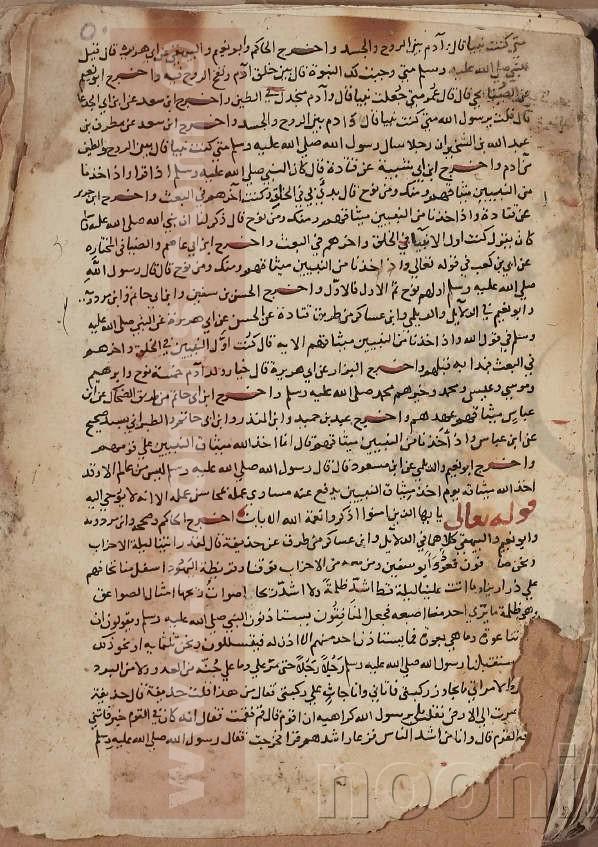 متى كنت نبيا قال وآدم بين الروح والجسد واخرج الحاكم وابو نعيم والبيهقي عن ابي هريرة قال قيل
للنبي صلى الله عليه وسلم متى وجبت لك النبوة قال بين خلق آدم ونفخ الروح فيه واخرج ابو نعيم
عن الصنابحي قال قال عمر متى جعلت نبيا قال وآدم منجدل في الطين واخرج ابن سعد عن ابن ابي الجدعا
قال قلت يرسول الله متى كنت نبيا قال اذ آدم بين الروح والجسد واخرج ابن سعد عن مطرف بن
عبد الله بن الشخير ان رجلا سال رسول الله صلى الله عليه وسلم متى كنت نبيا قال بين الروح والطين
من آدم واخرج ابن ابي شيبة عن قتادة قال كان النبي صلى الله عليه وسلم اذا قرا واذ اخذنا
من النبيين ميثاقهم ومنك ومن نوح قال بدئ بي في الخلق وكنت آخرهم في البعث واخرج ابن جرير
عن قتادة واذ اخذنا من النبيين ميثاقهم ومنك ومن نوح قال ذكر لنا ان نبي الله صلى الله عليه وسلم
كان يقول كنت اول الانبيا في الخلق واخرهم في البعث واخرج ابن ابي عاصم والضيا في المختاره
عن ابي بن كعب في قوله تعالى واذ اخذنا من النبيين ميثاقهم ومنك ومن نوح قال قال رسول الله
صلى الله عليه وسلم اولهم نوح ثم الاول فالاول واخرج الحسن بن سفين وابن ابي حاتم وابن مردويه
وابو نعيم في الدلايل والديلمي وابن عساكر من طريق قتادة عن الحسن عن ابي هريرة عن النبي صلى الله عليه
وسلم في قول الله واذ اخذنا من النبيين ميثاقهم الايه قال كنت اول النبيين في الخلق واخرهم
في البعث فبدا به قبلهم واخرج البزار عن ابي هريرة قال خيار ولد آدم خمسة نوح وابرهيم
وموسى وعيسى ومحمد وخيرهم محمد صلى الله عليه وسلم واخرج ابن ابي حاتم من طريق الضحاك عن ابن
عباس ميثاقهم عهدهم واخرج عبد بن حميد وابن المنذر وابن ابي حاتم والطبراني بسند صحيح
عن ابن عباس واذ اخذنا من النبيين ميثاقهم قال انما اخذ الله ميثاق النبيين على قومهم
واخرج ابو نعيم والديلمي عن ابن مسعود قال قال رسول الله صلى الله عليه وسلم ليس من عالم الا وقد
اخذ الله ميثاقه يوم اخذ ميثاق النبيين يدفع عنه مساوى عمله لمحاسن عمله الا انه لا يوحى اليه
قوله تعالى يا يها الذين امنوا اذكروا نعمة الله الايات اخرج الحاكم وصححه وابن مردويه
وابو نعيم والبيهقي كلاهما في الدلايل وابن عساكر من طرق عن حذيفة قال لقد رايتنا ليلة الاحزاب
ونحن صافون قعود وابو سفين ومن معه من الاحزاب فوقنا وقريظة اليهود اسفل منا نخافهم
على ذرارينا وما اتت علينا ليلة قط اشد ظلمة ولا اشد ريحا اصوات ريحها امثال الصواعق
وهي ظلمة ما يرى احد منا اصبعه فجعل المنافقون يستاذنون النبي صلى الله عليه وسلم ويقولون ان
بيوتنا عورة وما هي بعورة فما يستاذن احد منهم الا اذن له فيتسللون ونحن ثلثمايه او نحو ذلك
استقبلنا رسول الله صلى الله عليه وسلم رجلا رجلا حتى مر علي وما علي جنة من العدو ولا من البرد
الا مرط لامراتي ما يجاوز ركبتي فاتاني وانا جاث على ركبتي فقال من هذا قلت حذيفة قال حذيفة
فتقاصرت الى الارض فقلت بلى يرسول الله كراهية ان اقوم قال قم فقمت فقال انه كان في القوم خبر فاتني
بخبر القوم قال وانا من اشد الناس فزعا واشدهم قرا فخرجت فقال رسول الله صلى الله عليه وسلم